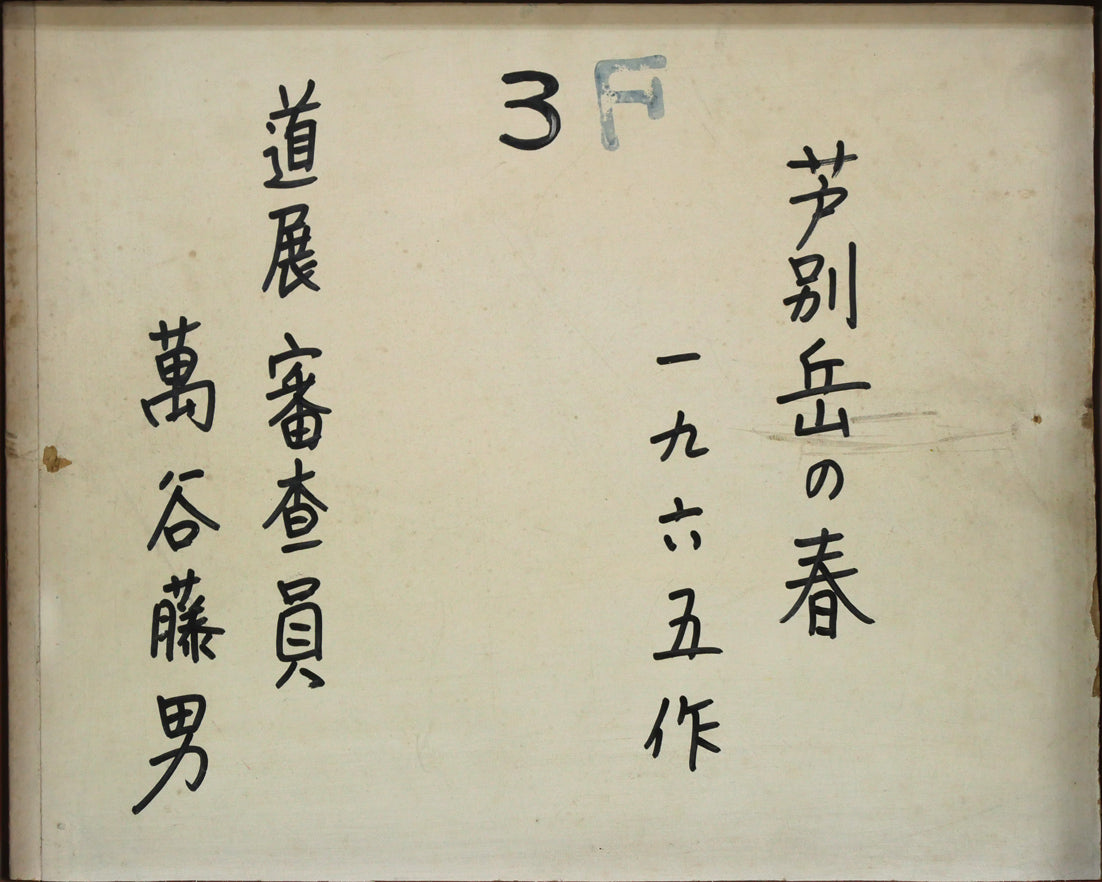 3F
芦別岳の春
一九六五作
道展 審査員
萬谷藤男